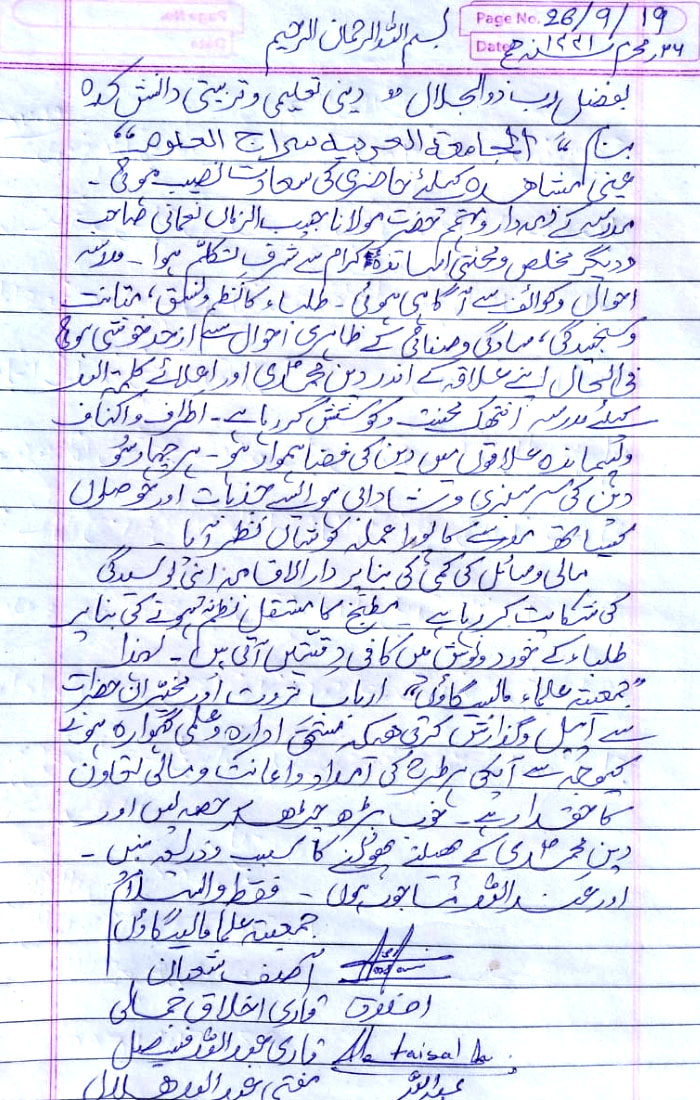 Page No. 26/9/19
بسم اللہ الرحمان الرحیم
Date ۲۶ محرم ۱۴۴۱ھ
بفضل رب ذوالجلال دینی تعلیمی و تربیتی دانش کدہ
بنام "الجامعۃ العربیہ سراج العلوم"
عینی مشاہدہ کیلئے حاضری کی سعادت نصیب ہوئی ۔
مدرسہ کے ذمہ دار و مہتمم حضرت مولانا الزماں نعمانی صاحب
و دیگر مخلص و محنتی اساتذہ کرام سے شرف تکلم ہوا ۔ مدرسہ
احوال و کوائف سے آگاہی ہوئی ۔ طلباء کا نظم و نسق، متانت
و سنجیدگی، سادگی و صفائی کے ظاہری احوال سے ازحد خوشی ہوئی
فی الحال اپنے علاقہ کے اندر دین محمدی اور اعلائے کلمۃ اللہ
کیلئے مدرسہ انتھک محنت و کوشش کر رہا ہے ۔ اطراف و اکناف
و پسماندہ علاقوں میں دین کی فضا ہموار ہو ۔ ہر چہار سو
دین کی سرسبزی و شادابی ہو ایسے جذبات اور حوصلوں
کیساتھ مدرسے کا پورا عملہ کوشاں نظر آیا ۔
مالی وسائل کی کمی کی بنا پر دارالاقامہ اپنی بوسیدگی
کی شکایت کر رہا ہے ۔ مطبخ کا مستقل نظم نہ ہونے کی بنا پر
طلباء کے خورد و نوش میں کافی دقتیں آتی ہیں ۔ لہذا
"جمعیۃ علماء مالیگاؤں" ارباب ثروت اور مخیران حضرات
سے اپیل و گذارش کرتی ہیکہ مستحق ادارہ و علمی گہوارہ ہونے
کیوجہ سے آپکی ہر طرح کی امداد و اعانت و مالی تعاون
کا حقدار ہے ۔ خوب بڑھ چڑھ کر حصہ لیں اور
دین محمدی کے پھلنے پھولنے کا سبب و ذریعہ بنیں ۔
اور عند اللہ ماجور ہوں ۔ فقط والسلام
جمعیۃ علما مالیگاؤں
آصف شعبان
قاری اخلاق جمالی
قاری عبداللہ فیصل faisal
مفتی عبداللہ ہلال عبداللہ